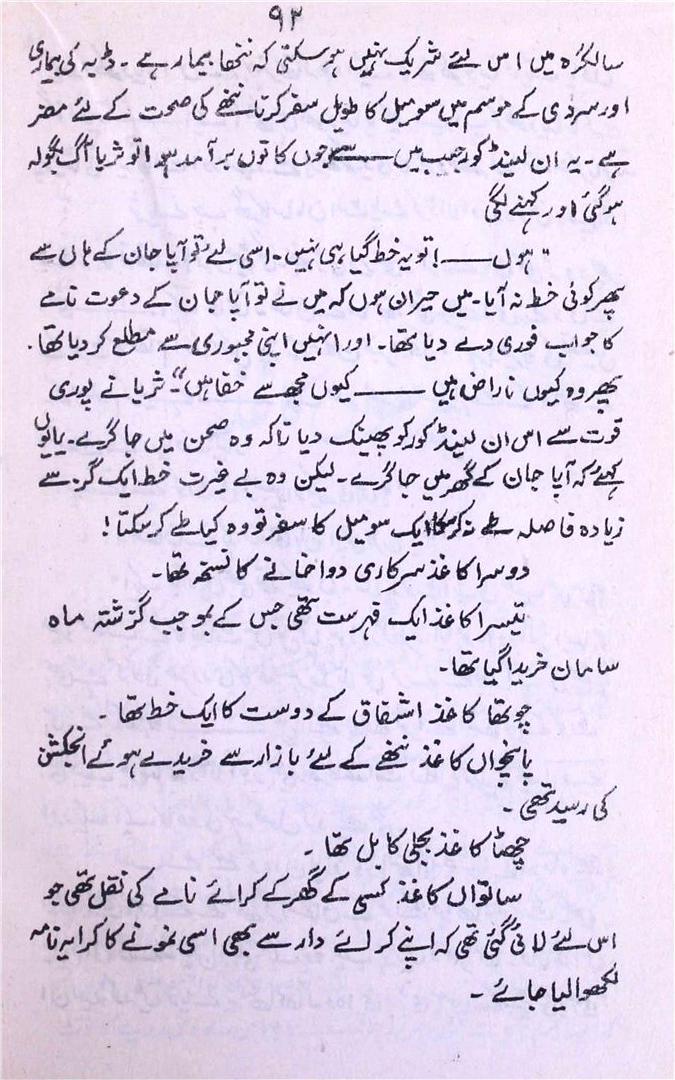 ۹۲
سالگرہ میں اس لئے شریک نہیں ہو سکتی کہ ننھا بیمار ہے ۔ ڈبہ کی بیماری
اور سردی کے موسم میں سو میل کا طویل سفر کرنا ننھے کی صحت کے لئے مضر
ہے ۔ یہ ان لینڈ کور جیب میں ـــــ سے جوں کا توں برآمد ہوا تو ثریا آگ بگولہ
ہو گئی اور کہنے لگی
" ہوں ـــــ ! تو یہ خط گیا ہی نہیں ۔ اسی لئے تو آپا جان کے ہاں سے
پھر کوئی خط نہ آیا ۔ میں حیران ہوں کہ میں نے تو آپا جان کے دعوت نامے
کا جواب فوری دے دیا تھا ۔ اور انہیں اپنی مجبوری سے مطلع کر دیا تھا ۔
پھر وہ کیوں ناراض ہیں ـــــ کیوں مجھ سے خفا ہیں " ۔ ثریا نے پوری
قوت سے اس ان لینڈ کور کو پھینک دیا تاکہ وہ صحن میں جا گرے ۔ یا یوں
کہئے کہ آپا جان کے گھر میں جا گرے ۔ لیکن وہ بے غیرت خط ایک گز سے
زیادہ فاصلہ طے نہ کر سکا ایک سو میل کا سفر تو وہ کیا طے کر سکتا !
دوسرا کاغذ سرکاری دوا خانے کا نسخہ تھا ۔
تیسرا کاغذ ایک فہرست تھی جس کے بموجب گزشتہ ماہ
سامان خریدا گیا تھا ۔
چوتھا کاغذ اشفاق کے دوست کا ایک خط تھا ۔
پانچواں کاغذ ننھے کے لئے بازار سے خریدے ہوئے انجکشن
کی رسید تھی ۔
چھٹا کاغذ بجلی کا بل تھا ۔
ساتواں کاغذ کسی کے گھر کے کرائے نامے کی نقل تھی جو
اس لئے لائی گئی تھی کہ اپنے کرائے دار سے بھی اسی نمونے کا کرایہ نامہ
لکھوا لیا جائے ۔